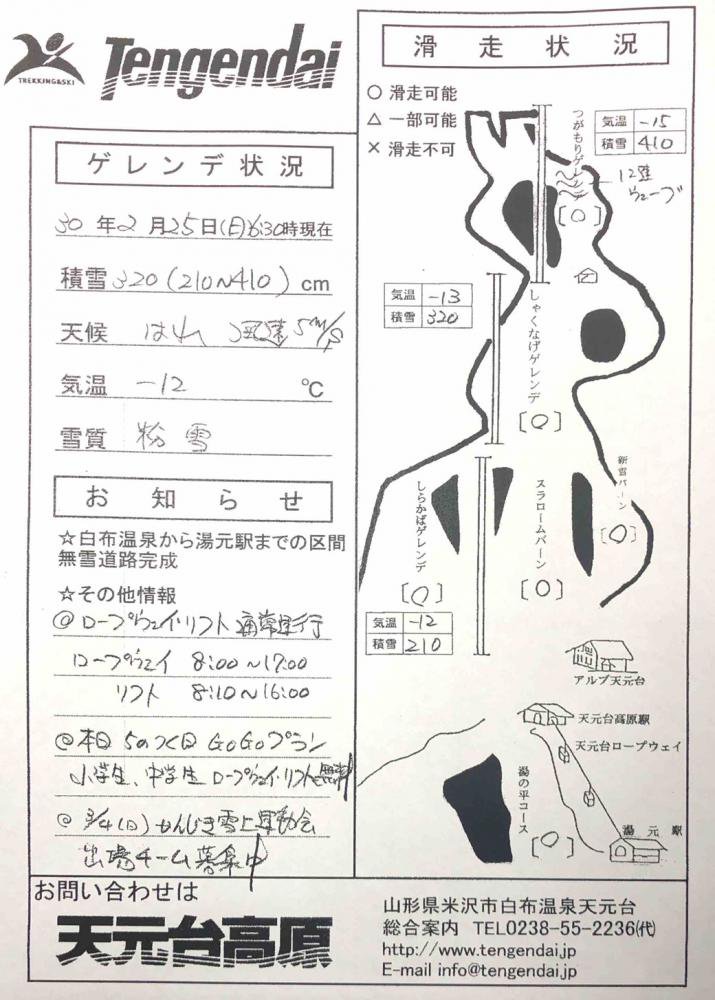 TREKKING&SKI
Tengendai
ゲレンデ状況
30年2月25日(日)6:30時現在
積雪 320(210~410)cm
天候 はれ 風速5m/s
気温 -12 ℃
雪質 粉雪
お知らせ
☆白布温泉から湯元駅までの区間
無雪道路完成
☆その他情報
@ロープウェイ・リフト通常運行
ロープウェイ 8:00~17:00
リフト 8:10~16:00
@本日 5のつく日 GoGoプラン
小学生、中学生 ロープウェイ・リフトも無料
@3/4(日)かんじき雪上運動会
出場チーム募集中
滑走状況
○ 滑走可能
△ 一部可能
× 滑走不可
気温 -15
積雪 410
つがもりゲレンデ
[○]
12連
ウェーブ
気温 -13
積雪 320
しゃくなげゲレンデ
[○]
しらかばゲレンデ
[○]
スラロームバーン
[○]
新雪バーン
[○]
気温 -12
積雪 210
アルブ天元台
天元台高原駅
天元台ロープウェイ
湯の平コース
[○]
湯元駅
お問い合わせは
天元台高原
山形県米沢市白布温泉天元台
総合案内 TEL0238-55-2236㈹
http://www.tengendai.jp
E-mail info@tengendai.jp